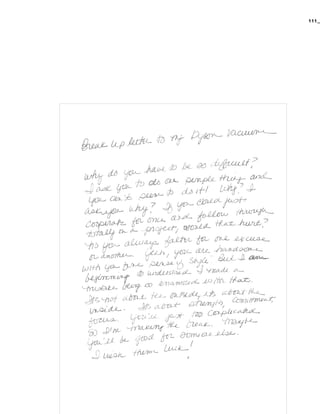 111_
Break up letter to my Dyson Vacuum
Why do you have to be so difficult?
I ask you to do one simple thing and
you can't seem to do it! Why? I
ask you why? If you could just
cooperate for once and follow through
totally on a project, would that hurt?
No you always falter for one excuse
or another. Yeah, you are handsome
with you fine sense of style. But I am
beginning to understand I made a
mistake being so enamored with that.
It's not about the outside, its about the
inside. Its about strength, commitment,
focus. You're just too complicated
So I'm making the break. Maybe
you'll be good for someone else.
I wish them luck!